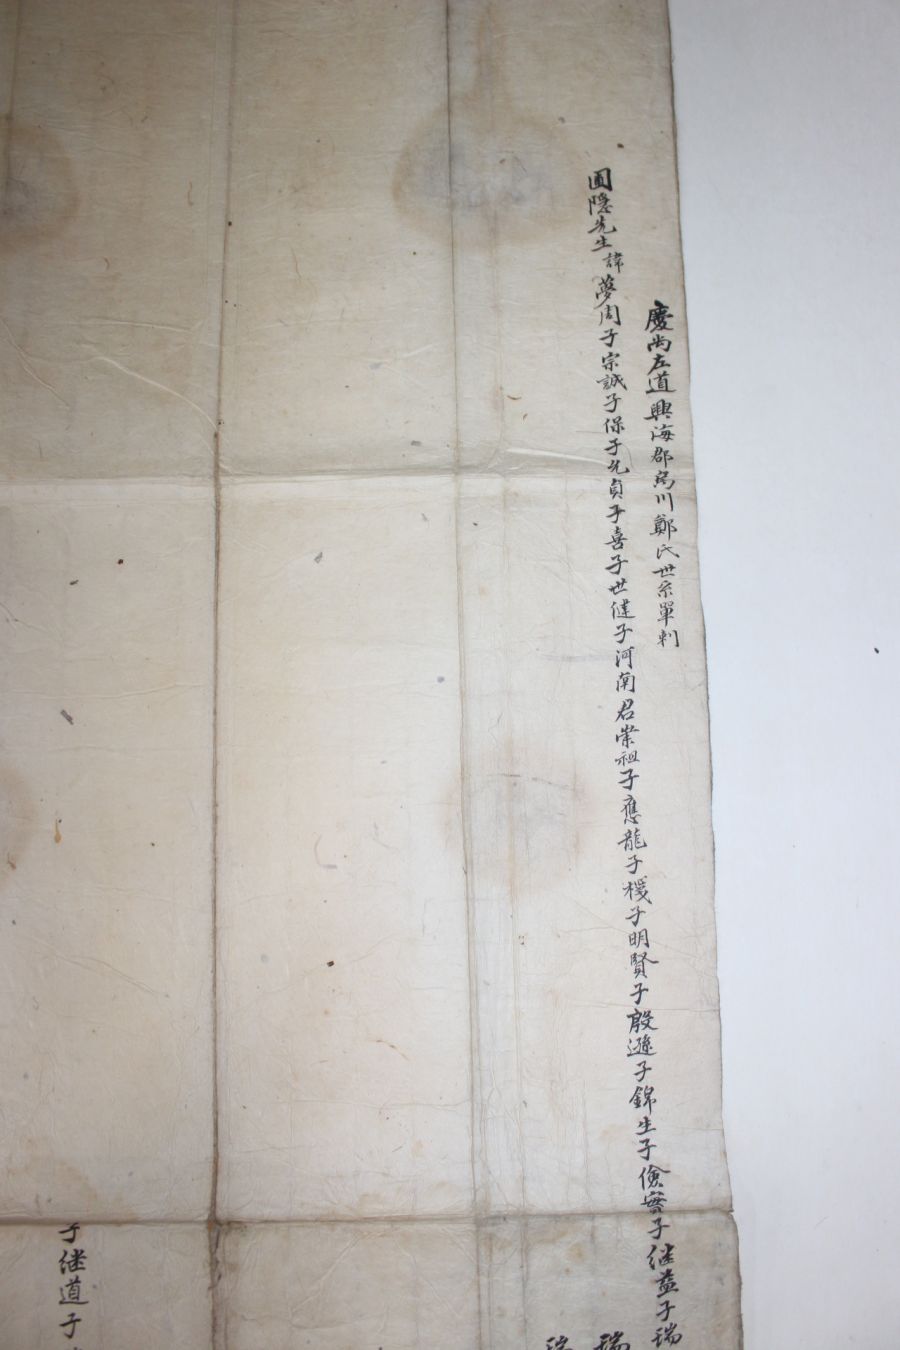 慶尚左道興海郡烏川鄭氏世系單刺
圃隱先生諱夢周子宗誠子保子允貞子喜子世健子河南君崇祖子應龍子機子明賢子殷遜子錦生子儉實子継益子瑞
瑞
瑞
子継道子